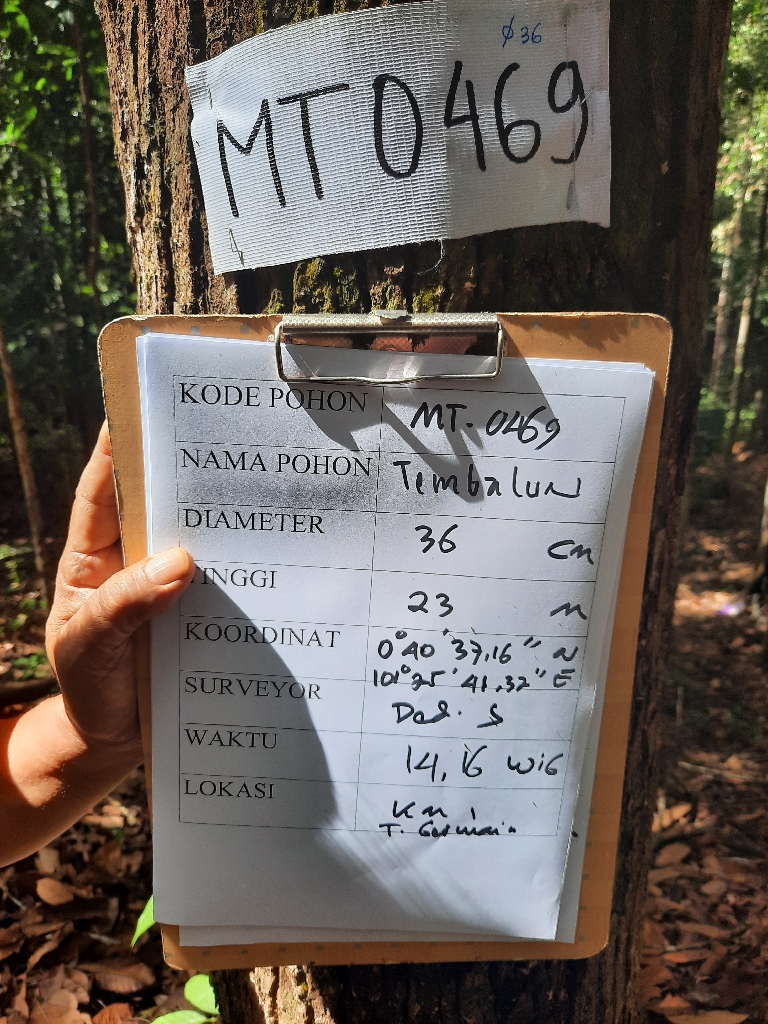 ø 36
MT 0469
KODE POHON MT. 0469
NAMA POHON Tembalun
DIAMETER 36 cm
TINGGI 23 m
KOORDINAT 0° 40' 37,16" N
101° 25' 41,32" E
SURVEYOR
WAKTU 14,16 WIB
LOKASI KM 1
T.